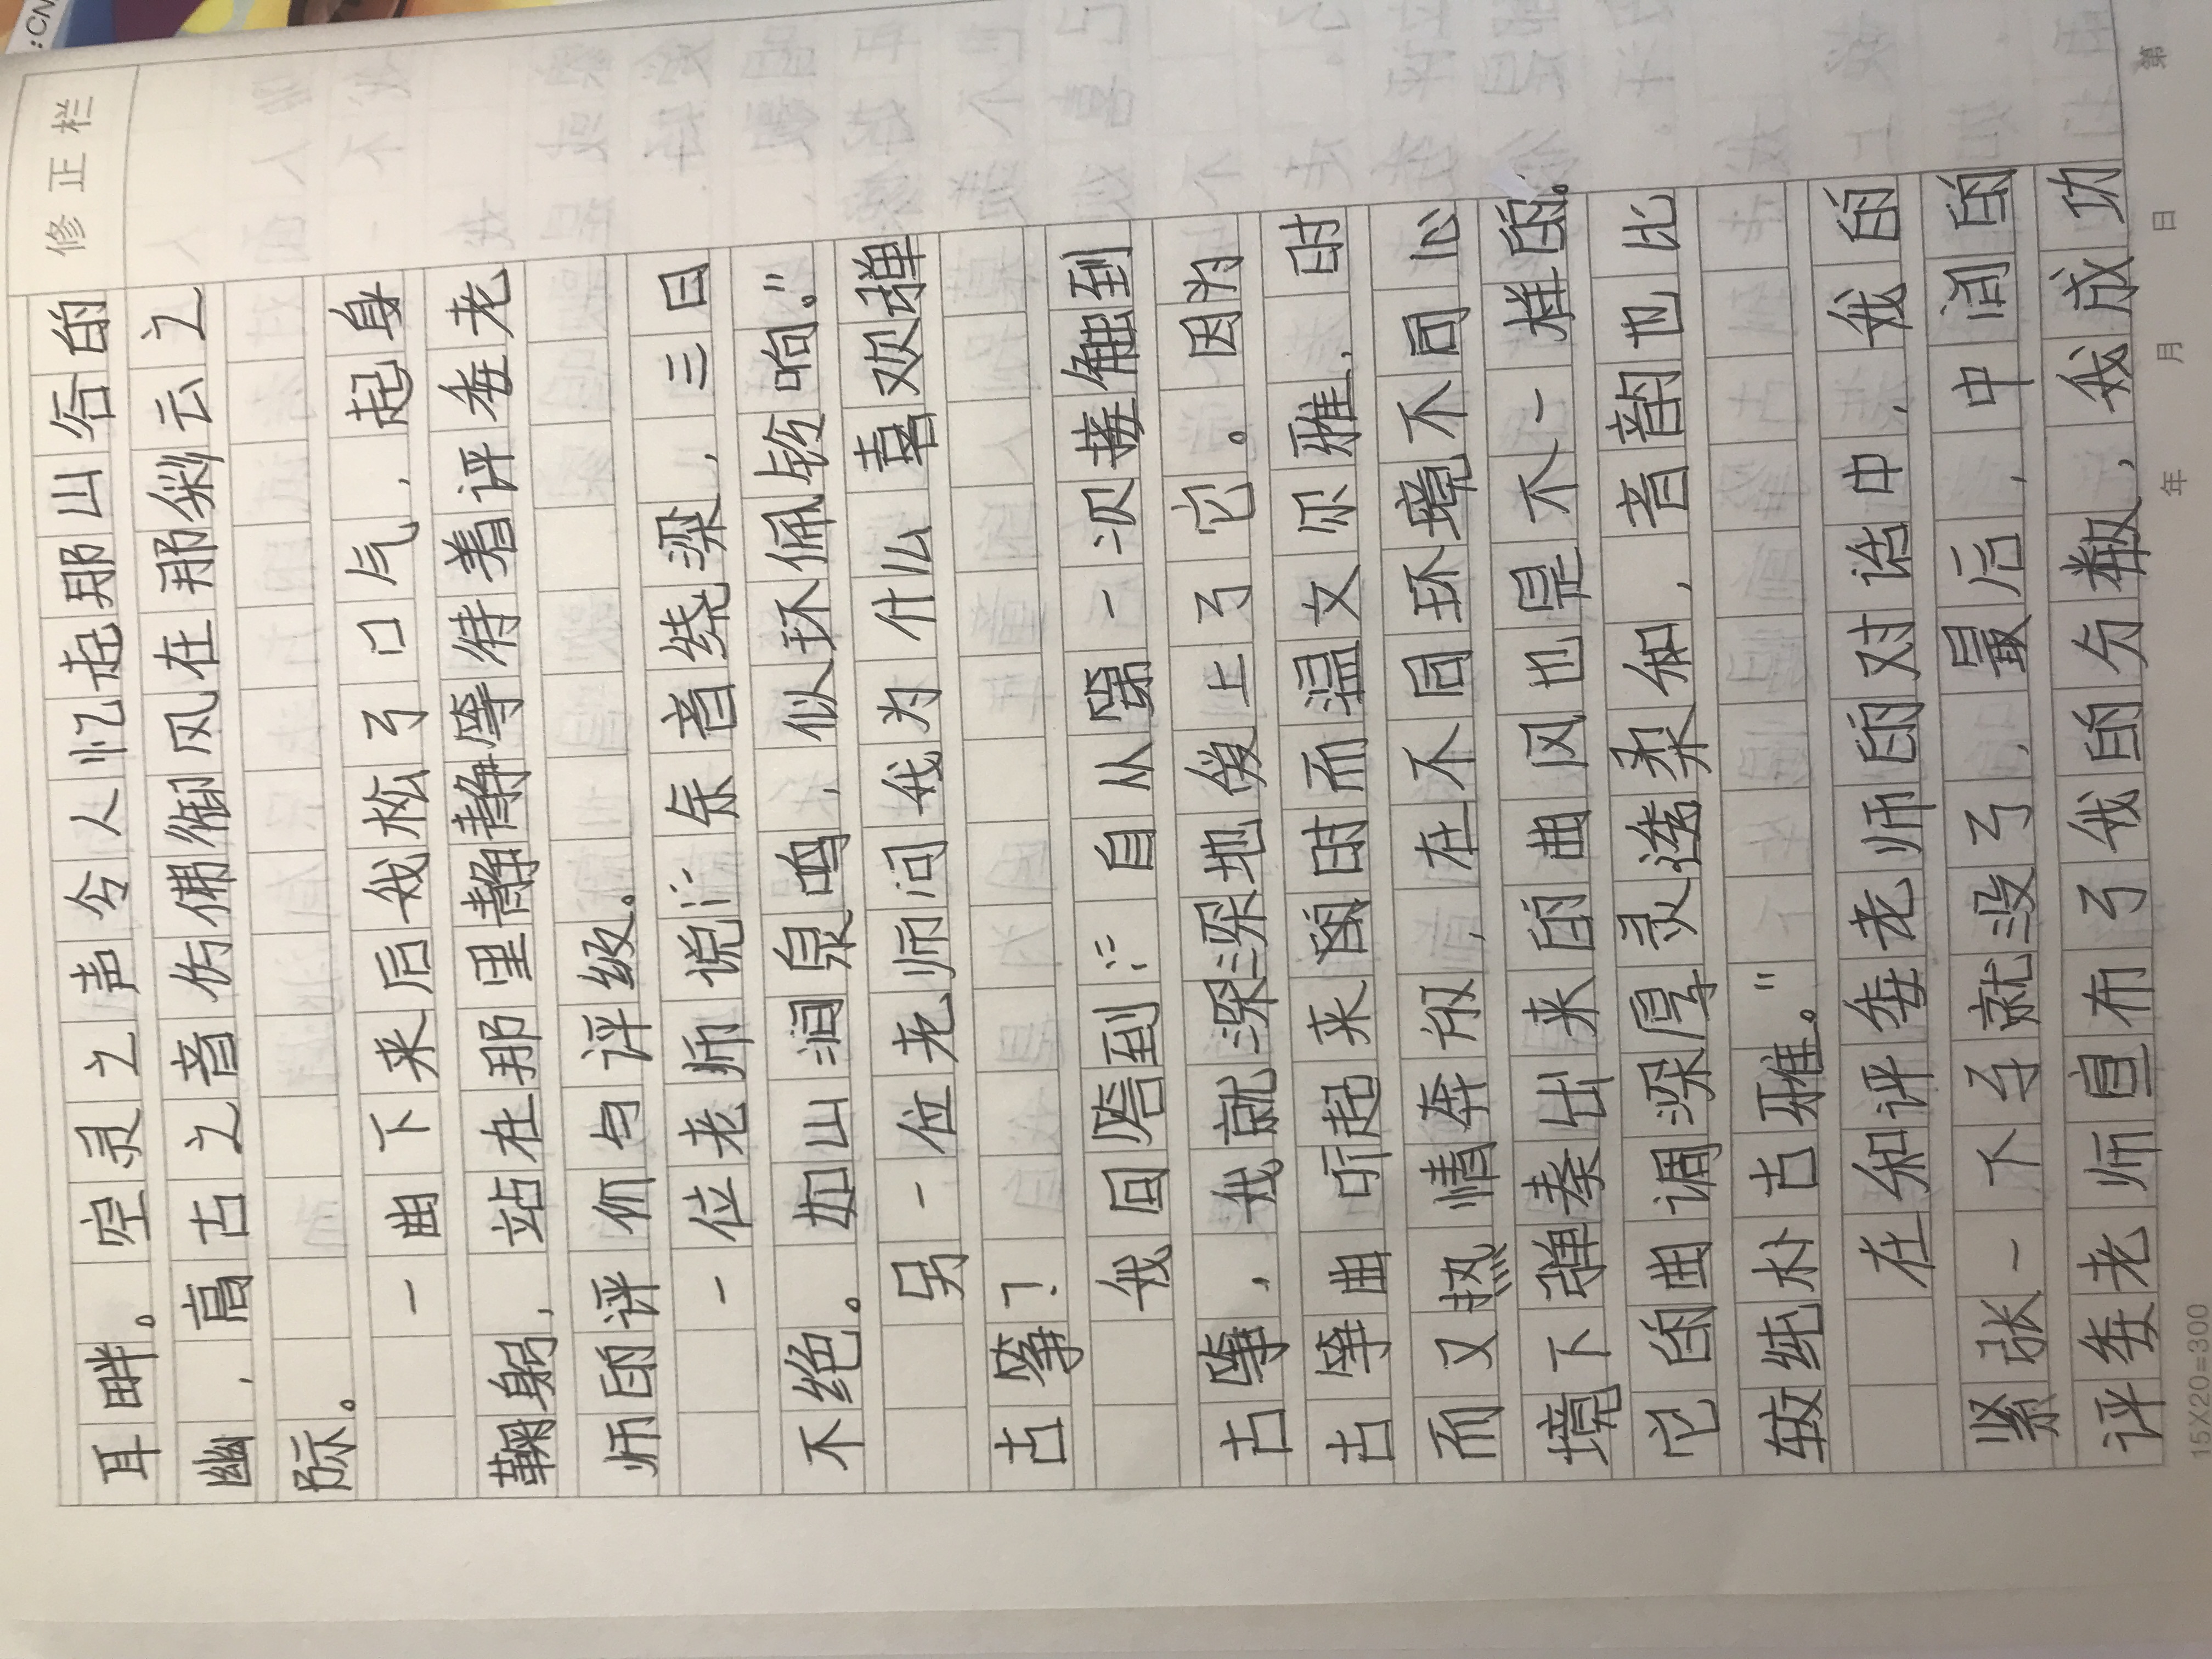 :CN
修正栏
耳畔。空灵之声令人忆起那山谷的
幽，高古之音仿佛御风在那彩云之
际。
一曲下来后我松了口气，起身
鞠躬，站在那里静静等待着评委老
师的评价与评级。
一位老师说：“余音绕梁，三日
不绝。如山涧泉鸣，似环佩铃响。”
另一位老师问我为什么喜欢弹
古筝？
我回答到：“自从第一次接触到
古筝，我就深深地爱上了它。因为
古筝曲听起来的时而温文尔雅，时
而又热情奔放，在不同环境不同心
境下弹奏出来的曲风也是不一样的。
它的曲调深厚灵透柔和，音韵也比
较纯朴古雅。”
在和评委老师的对话中，我的
紧张一下子就没了，最后，中间的
评委老师宣布了我的分数，我成功
15X20=300
年 月 日 第